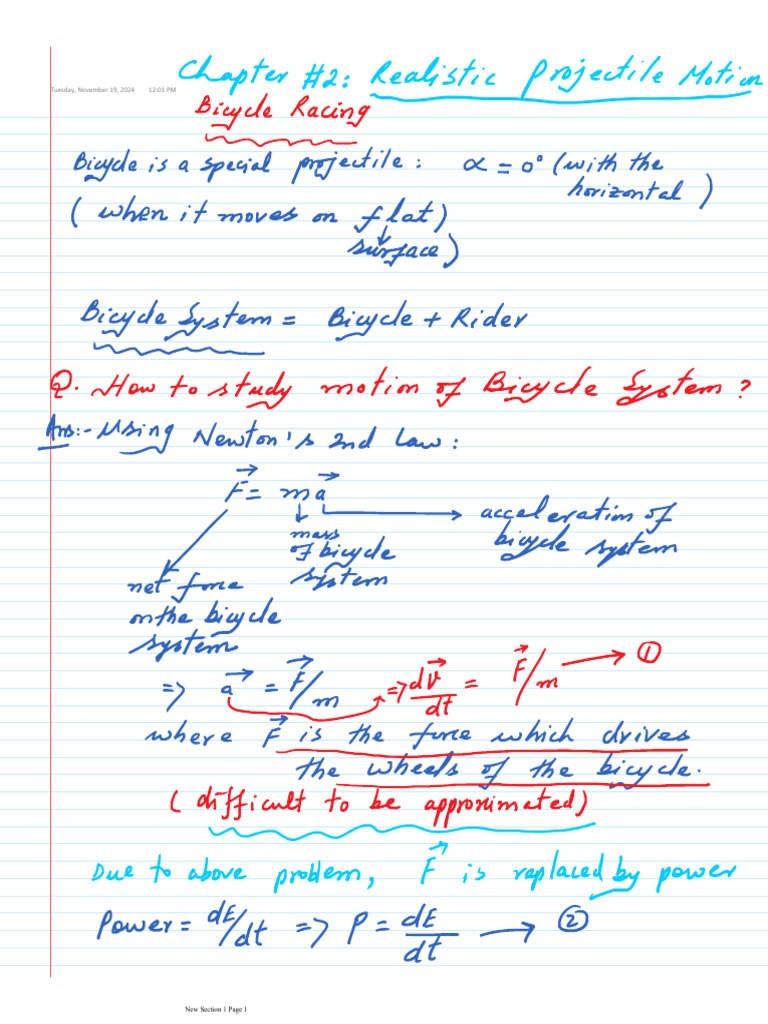 Chapter #2: Realistic Projectile Motion
Tuesday, November 19, 2024 12:01 PM
Bicycle Racing
Bicycle is a special projectile : α = 0° (with the horizontal)
(when it moves on flat)
surface)
Bicycle System = Bicycle + Rider
Q. How to study motion of Bicycle System ?
Ans:- Using Newton's 2nd Law :
F⃗ = ma⃗
acceleration of bicycle system
mass of bicycle system
net force on the bicycle system
=> a⃗ = F⃗/m => dv⃗/dt = F⃗/m → ①
where F⃗ is the force which drives
the wheels of the bicycle.
(difficult to be approximated)
Due to above problem, F⃗ is replaced by power
Power = dE/dt => P = dE/dt → ②
New Section 1 Page 1